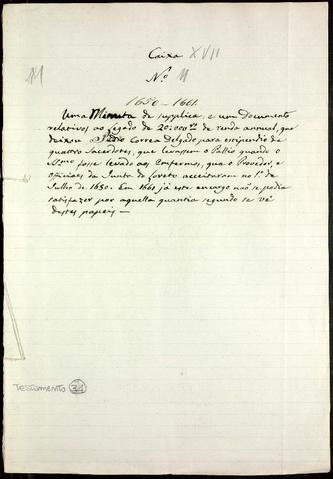 Caixa XVII
11
N.º 11
1650-1661.
Uma Minuta de supplica, e um Documento
relativos ao Legado de 20:000 rs de renda annual, que
deixou Correa Delgado para estipendio de
quattro Sacerdotes, que levassem o Pallio quando o
SSmo fosse levado aos Enfermos, que o Provedor, e
officiaes da Junta do Loreto acceitaram no 1.º de
Julho de 1650. Em 1661 já este encargo não se podia
satisfazer por aquella quantia segundo se vê
destes papeis —
Testamento 31